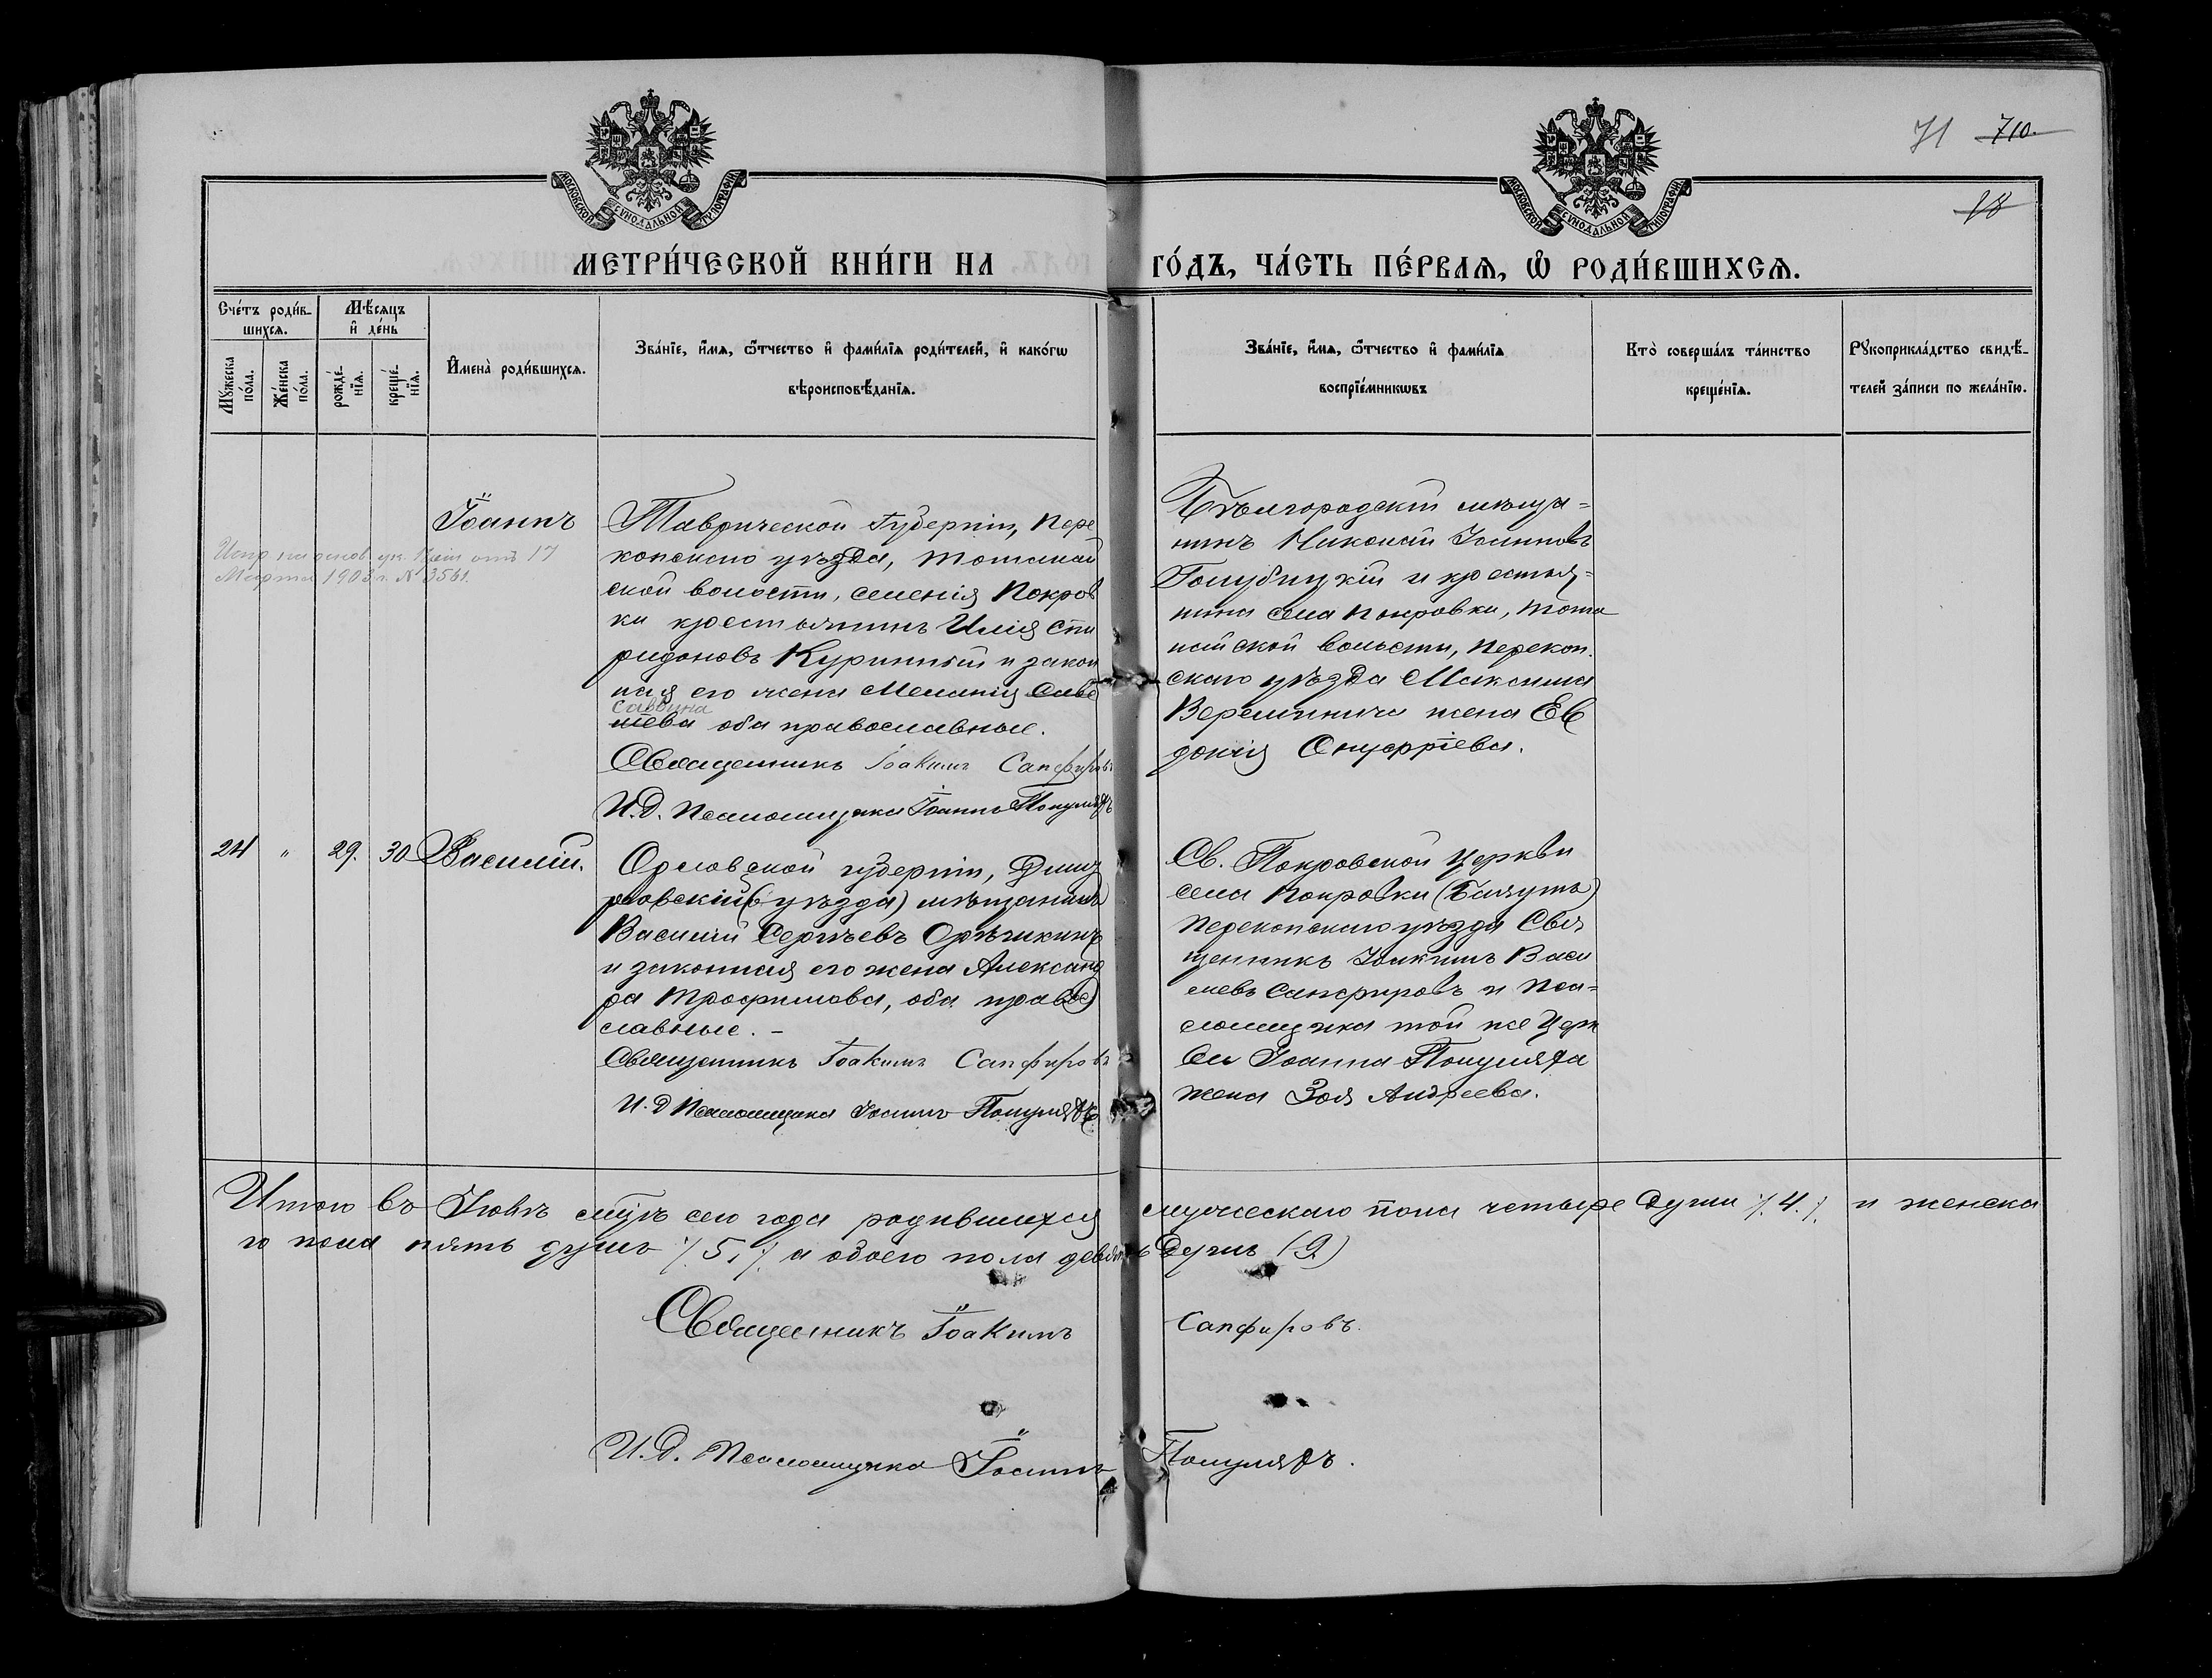 71 710.
18
МОСКОВСКОЙ СѴНОДАЛЬНОЙ ТИПОГРАФІИ
МОСКОВСКОЙ СѴНОДАЛЬНОЙ ТИПОГРАФІИ
МЕТРИ́ЧЕСКОЙ КНИ́ГИ НА
ГО́ДЪ, ЧА́СТЬ ПЕ́РВАѦ, Ѡ РОДИ́ВШИХСѦ.
Сче́тъ роди́в-
шихсѧ.
Мꙋ́жеска
по́ла.
Же́нска
по́ла.
Мѣ́сѧцъ
и҆ де́нь
рожде́-
нїѧ.
креще́-
нїѧ.
И҆мена̀ роди́вшихсѧ.
Зва́нїе, и҆́мѧ, ѻ҆́тчество и҆ фами́лїѧ роди́телей, и҆ како́гѡ
вѣроисповѣ́данїѧ.
Зва́нїе, и҆́мѧ, ѻ҆́тчество и҆ фами́лїѧ
воспрїе́мникѡвъ
Кто̀ соверша́лъ та́инство
креще́нїѧ.
Рꙋкоприкла́дство свидѣ́-
телей за́писи по жела́нїю.
Іоаннъ
Испр. на основ. ук. Конс. отъ 17
Марта 1903 г. № 3561.
Таврической Губерніи, Пере
копскаго уѣзда, Тотанай
ской волости, селенія Покров
ки крестьянинъ Илія Спи
ридоновъ Куринный и закон
ная его жена Меланія Саве
Саввина
тева оба православные.
Священникъ Іоакимъ Сапфировъ
И. д. Псаломщика Іоаннъ Популядъ
Бѣлгородскій мѣща=
нинъ Николай Іоанновъ
Голубицкій и крестья=
нина села Покровки, Тота
найской волости, Перекоп.
скаго уѣзда Максима
Веремѣнича жена Ев
докія Онуфріева.
24 " 29. 30 Василій.
Орловской губерніи, Дми
ровскій (уѣзда) мѣщанинъ
Василій Сергѣевъ Орѣчкинъ
и законная его жена Александ
ра Трофимова, оба право
славные. -
Священникъ Іоакимъ Сапфировъ
И. д Псаломщика Іоаннъ Популядъ.
Св. Покровской Церкви
села Покровки
Перекопскаго уѣзда Свя
щенникъ Іоакимъ Васи
льевъ Сапфировъ и Пса=
ломщика той же Церк
ви Іоанна Популяда
жена Зоя Андреева.
Итого въ Іюлѣ мѣсяцѣ сего года родившихся мужескаго пола четыре души /.4./. и женска
го пола пять душъ /.5./. а обоего пола девять Душъ (9.)
Священникъ Іоакимъ Сапфировъ.
И. д. Псаломщика Іоаннъ Популядъ.